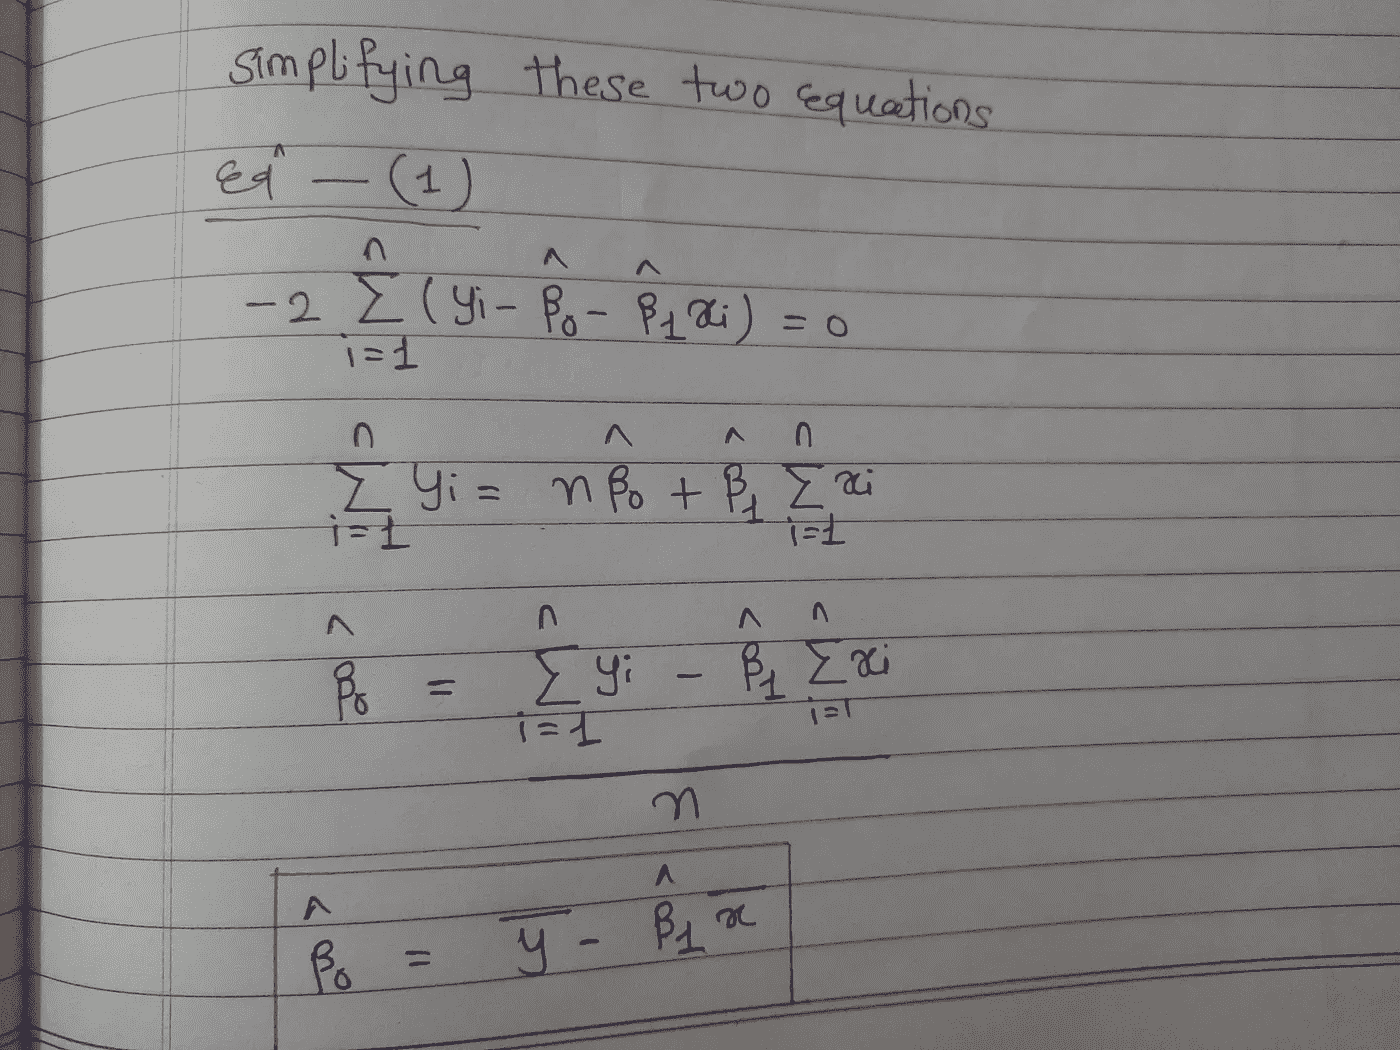 Simplifying these two equations
Eqⁿ — (1)
-2 Σ_{i=1}^{n} (yi - β̂₀ - β̂₁ xi) = 0
Σ_{i=1}^{n} yi = n β̂₀ + β̂₁ Σ_{i=1}^{n} xi
β̂₀ = (Σ_{i=1}^{n} yi - β̂₁ Σ_{i=1}^{n} xi) / n
β̂₀ = y̅ - β̂₁ x̅